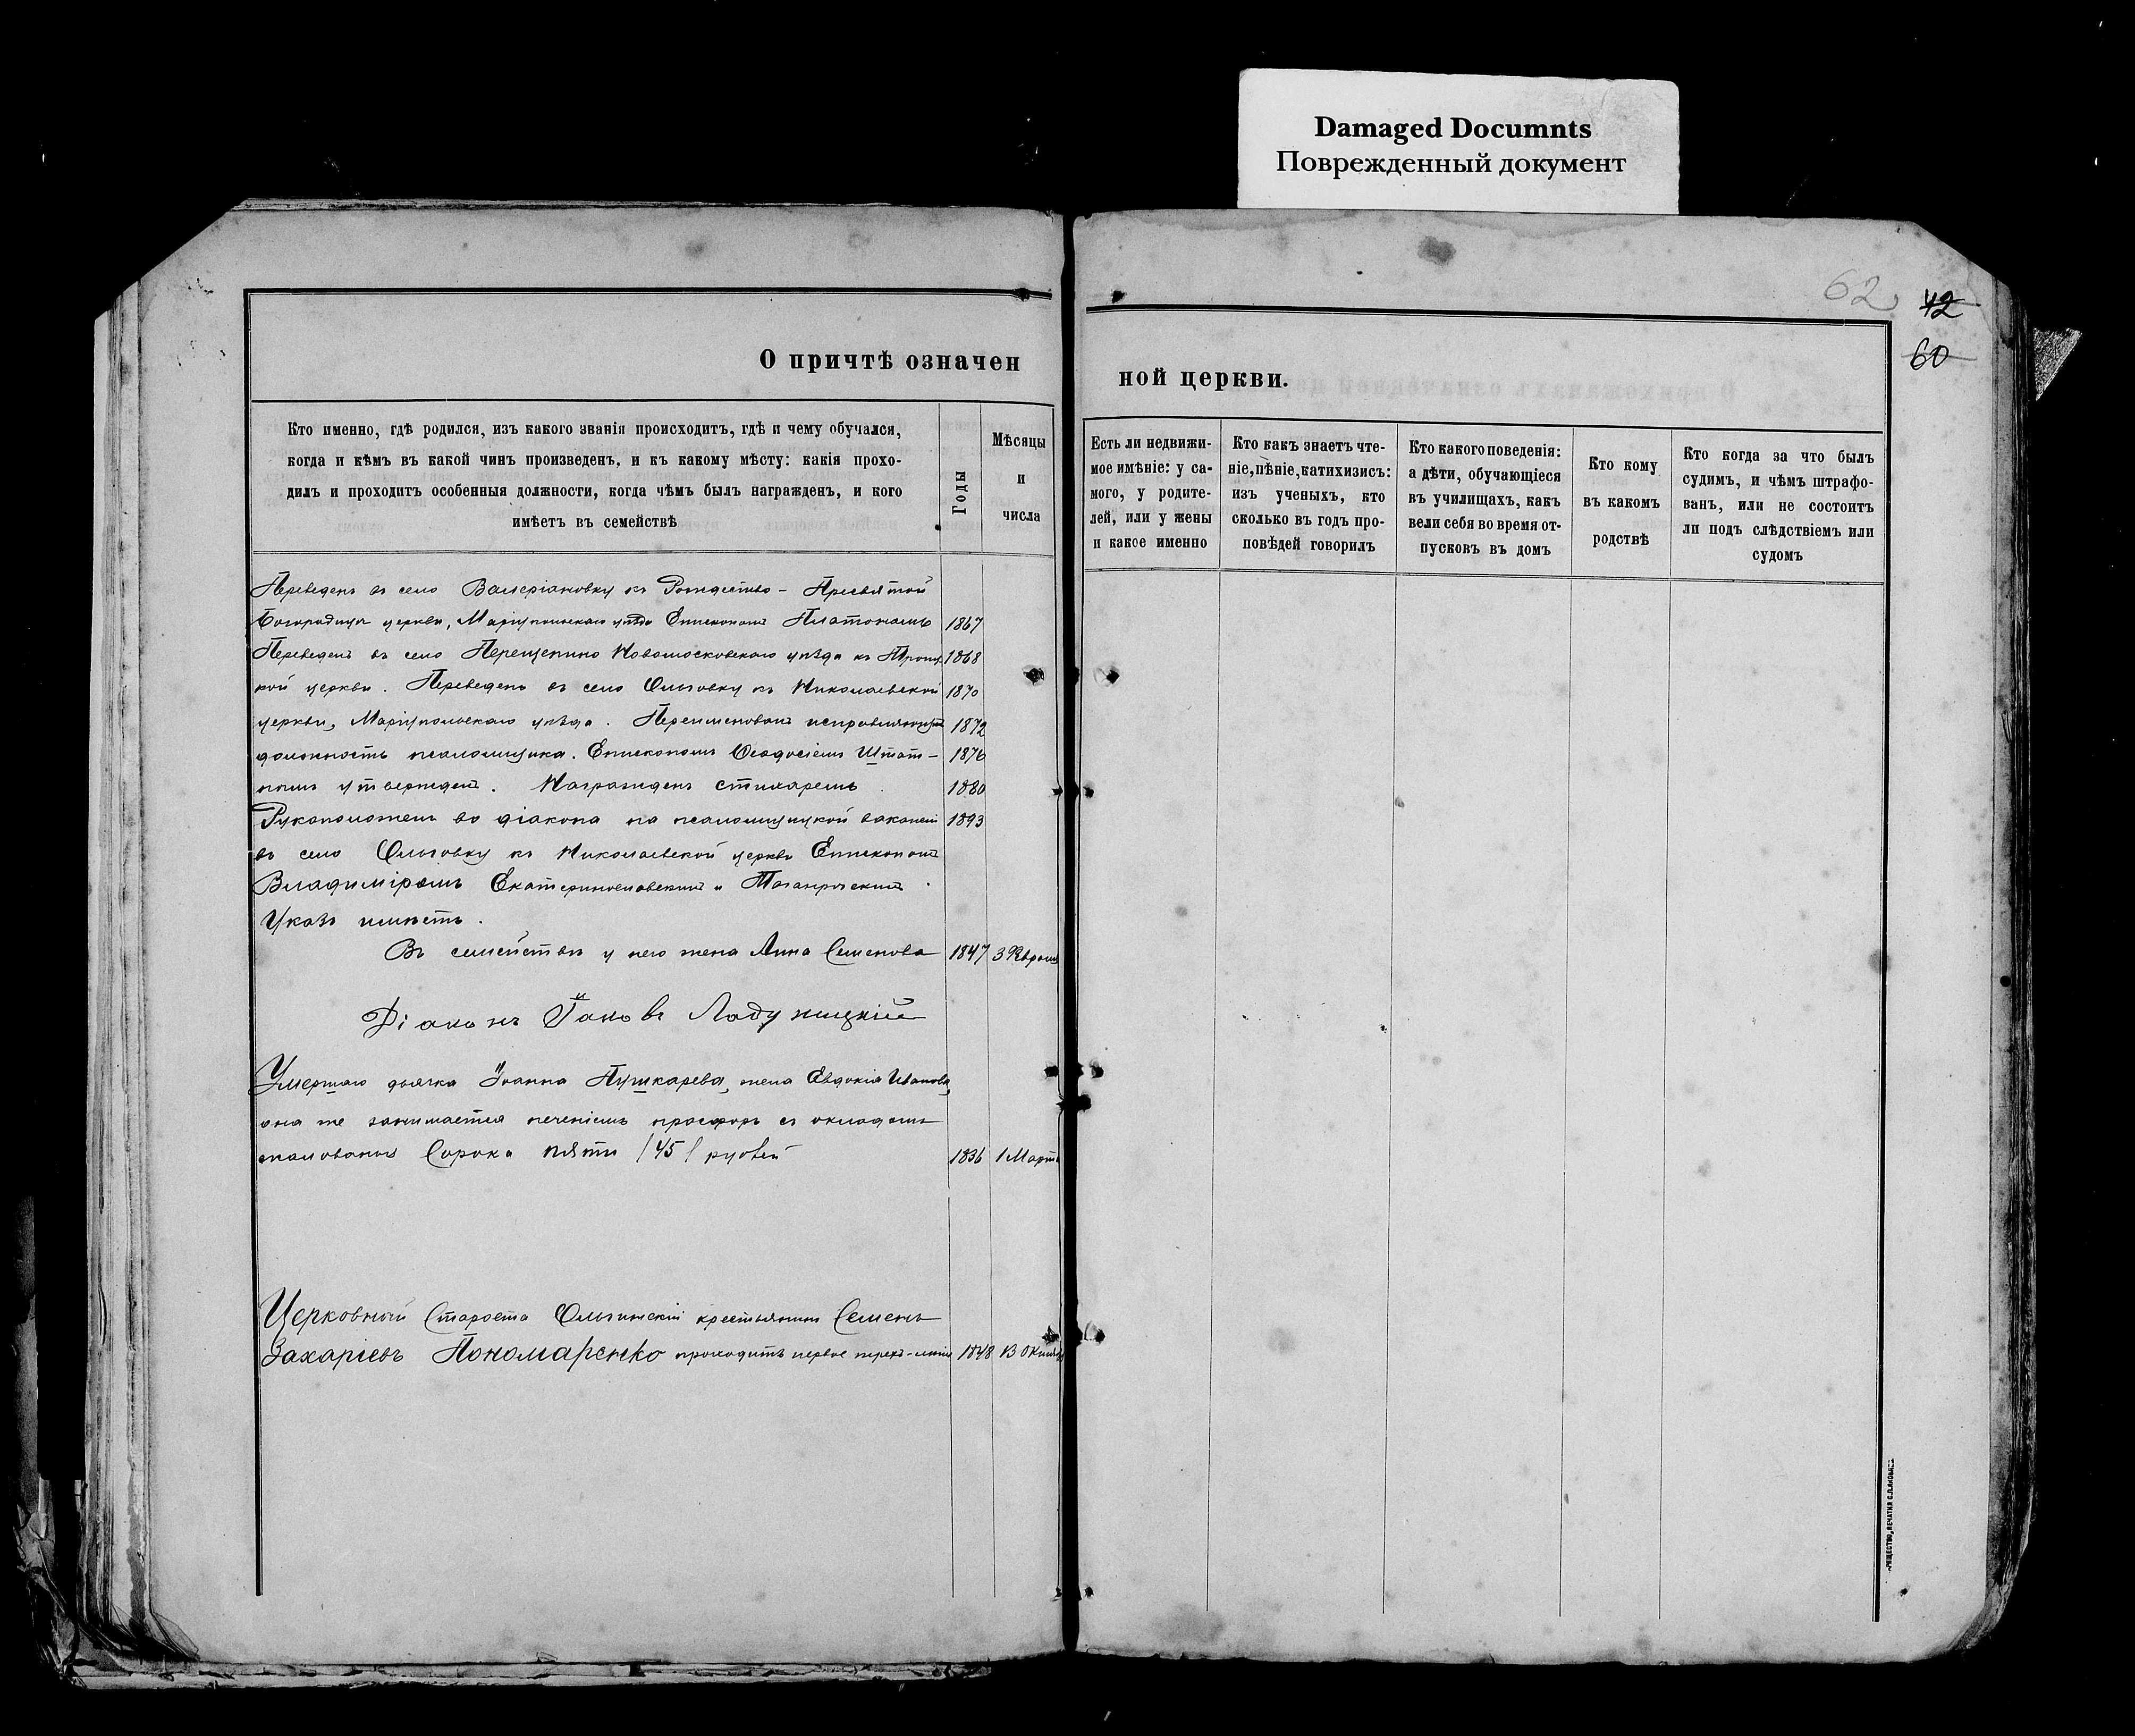 Damaged Documnts
Поврежденный документ
62
42
60
О причтѣ означен
ной церкви.
Кто именно, гдѣ родился, изъ какого званія происходитъ, гдѣ и чему обучался,
когда и кѣмъ въ какой чинъ произведенъ, и къ какому мѣсту: какія прохо-
дилъ и проходитъ особенныя должности, когда чѣмъ былъ награжденъ, и кого
имѣетъ въ семействѣ
Годы
Мѣсяцы
и
числа
Есть ли недвижи-
мое имѣніе: у са-
мого, у родите-
лей, или у жены
и какое именно
Кто какъ знаетъ чте-
ніе, пѣніе, катихизисъ:
изъ ученыхъ, кто
сколько въ годъ про-
повѣдей говорилъ
Кто какого поведенія:
а дѣти, обучающіеся
въ училищахъ, какъ
вели себя во время от-
пусковъ въ домъ
Кто кому
въ какомъ
родствѣ
Кто когда за что былъ
судимъ, и чѣмъ штрафо-
ванъ, или не состоитъ
ли подъ слѣдствіемъ или
судомъ
Переведенъ въ село Валеріановку къ Рождество - Пресвятой
Богородицы церкви, Маріупольскаго уѣзда Епископомъ Платономъ 1867
Переведенъ въ село Перещепино Новомосковскаго уѣзда къ Троиц 1868
кой церкви. Переведенъ въ село Ольговку къ Николаевской 1870
церкви, Маріупольскаго уѣзда. Переименованъ исправляющій 1872
должность псаломщика. Епископомъ Ѳеодосіемъ Штат- 1876
нымъ утвержденъ. Награжденъ стихаремъ 1880
Рукоположенъ во діакона на псаломщицкой вакансіи 1893
въ село Ольговку къ Николаевской церкви Епископомъ
Владиміромъ Екатеринославскимъ и Таганрогскимъ.
Указъ имѣетъ.
Въ семействѣ у него жена Анна Семенова 1847 3 Февраля
Діаконъ Іаковъ Ладужицкій
Умершаго дьячка Іоанна Пушкарева, жена Евдокія Иванова,
она же занимается печеніемъ просфоръ съ окладомъ
жалованья Сорока пяти /45/ рублей 1836 1 Марта
Церковный Староста Ольгинскій крестьянинъ Семенъ
Захаріевъ Пономаренко проходитъ первое трехъ-лѣтіе 1848